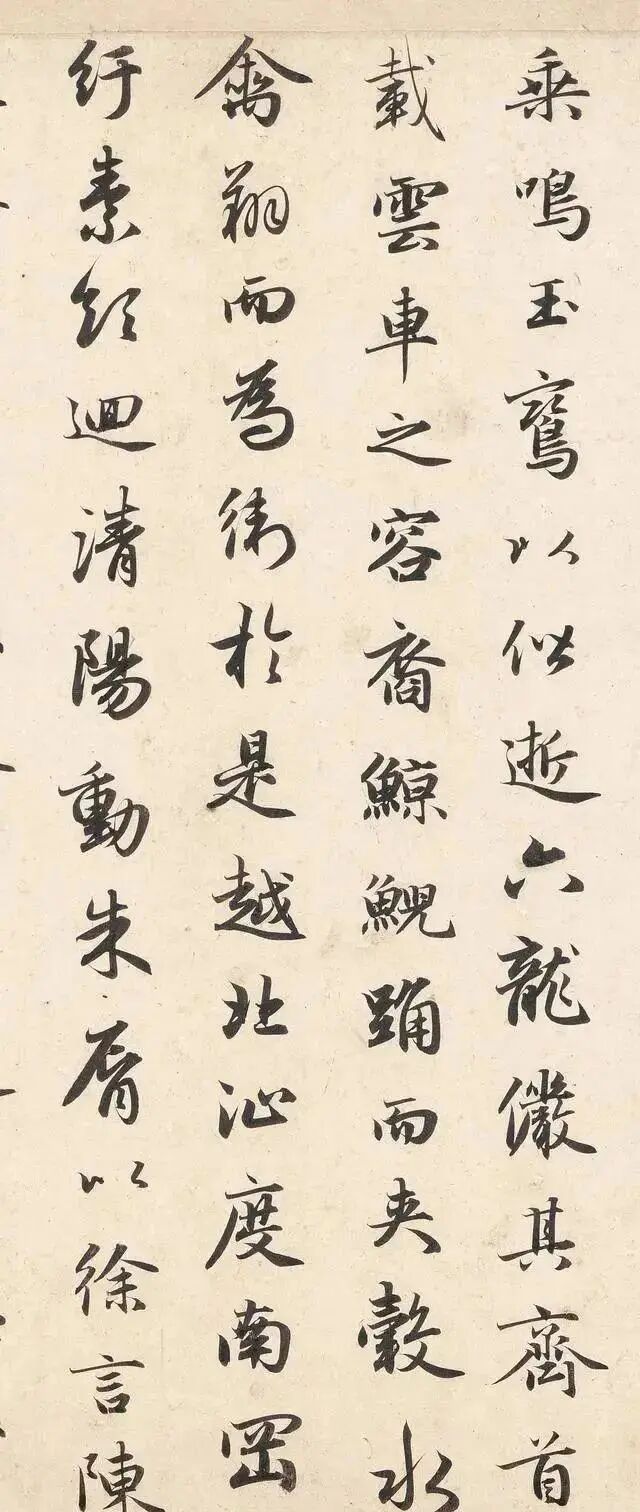 乘鳴玉鸞以偕逝六龍儼其齊首
載雲車之容裔鯨鯢踊而夾轂水
禽翔而為衛於是越北沚度南岡
紆素領迴清陽動朱脣以徐言陳